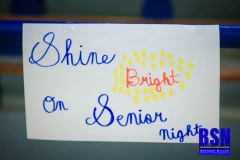 Shine
Bright
On Senior
night
BSN